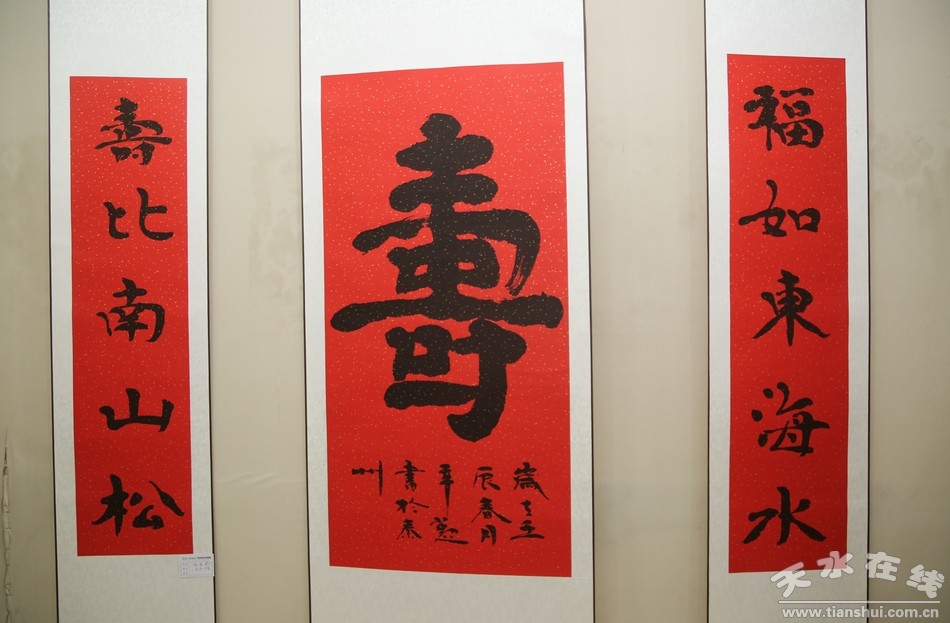 福如東海水
壽
歲在壬
辰春月
書於秦
州
壽比南山松
天水在线
www.tianshui.com.cn